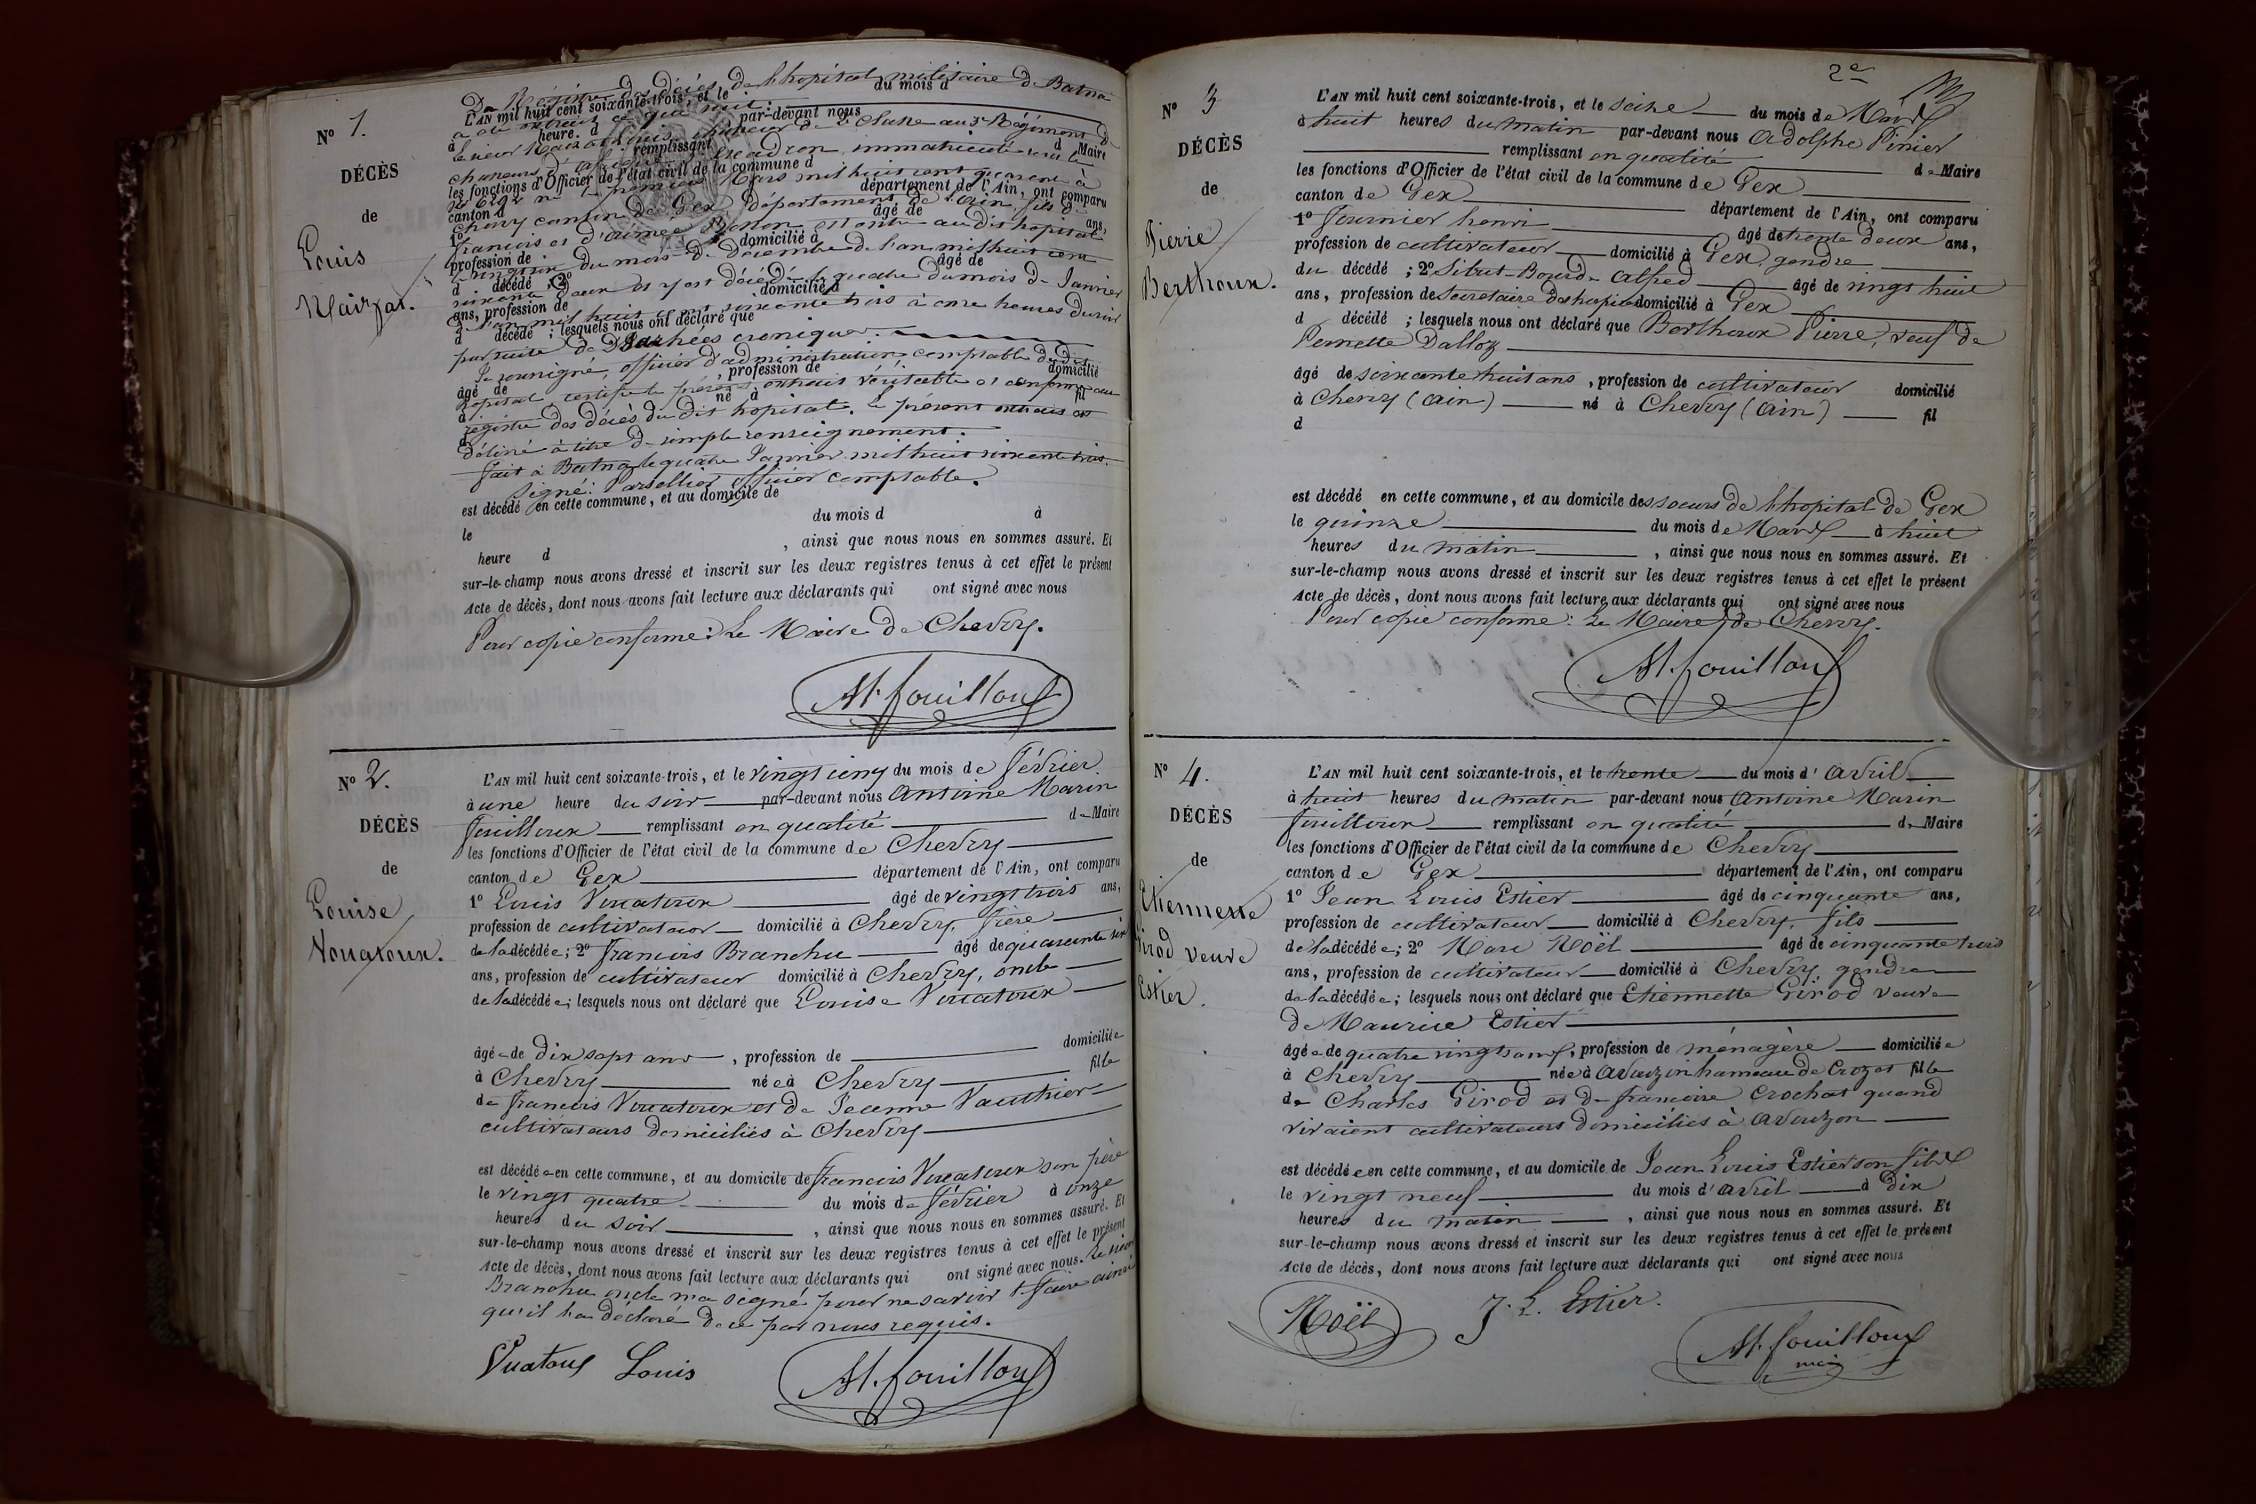 N° 1.
DÉCÈS
de
Louis
Mairzat.
Du Régistre des décès de l'hopital militaire de Batna
a été extrait ce qui suit :
L'AN mil huit cent soixante-trois, et le du mois d
à heure. d par-devant nous
le sieur Mairzat Louis, chasseur de 2e classe au 3e Régiment de
remplissant d Maire
chasseurs d'afrique escadron immatriculé sous le
les fonctions d'Officier de l'état civil de la commune d
né le premier Mars mil huit cent quarante à
canton d département de l'Ain, ont comparu
Chevry canton de Gex Département de l'ain, fils de
1° âgé de ans,
francois et d'aimée Bonton est entré au dit hopital
profession de domicilié à
le vingt six du mois de Décembre de l'an mil huit cent
d décédé ; 2° âgé de
soixante deux et y est décédé le quatre du mois de Janvier
ans, profession de domicilié à
de l'an mil huit cent soixante trois à onze heures du soir
d décédé ; lesquels nous ont déclaré que
par suite de Diarrhées cronique.
Je soussigné, officier d'administration comptable du dit
âgé de , profession de domicilié
hopital, certifie le présent extrait véritable et conforme au
à né à fil
régistre des décès du dit hopital. Le présent extrait est
d
délivré à titre de simple renseignement.
fait à Batna le quatre Janvier mil huit soixante trois.
Signé : Parsellier officier comptable.
est décédé en cette commune, et au domicile de
le du mois d à
heure d , ainsi que nous nous en sommes assuré. Et
sur-le-champ nous avons dressé et inscrit sur les deux registres tenus à cet effet le présent
Acte de décès, dont nous avons fait lecture aux déclarants qui ont signé avec nous
Pour copie conforme : Le Maire de Chevry.
M. fouilloux
N° 2.
DÉCÈS
de
Louise
Vouatoux.
L'AN mil huit cent soixante-trois, et le vingt cinq du mois de Février
à une heure du soir par-devant nous Antoine Marin
fouilloux remplissant en qualité de Maire
les fonctions d'Officier de l'état civil de la commune de Chevry
canton de Gex département de l'Ain, ont comparu
1° Louis Vouatoux âgé de vingt trois ans,
profession de cultivateur domicilié à Chevry, frère
de la décédée ; 2° francois Branchu âgé de quarante six
ans, profession de cultivateur domicilié à Chevry, oncle
de la décédée ; lesquels nous ont déclaré que Louise Vouatoux
âgée de dix sept ans , profession de domiciliée
à Chevry née à Chevry fille
de francois Vouatoux et de Jeanne Vauthier
cultivateurs domiciliés à Chevry
est décédée en cette commune, et au domicile de francois Vouatoux son père
le vingt quatre du mois de février à onze
heures du soir , ainsi que nous nous en sommes assuré. Et
sur-le-champ nous avons dressé et inscrit sur les deux registres tenus à cet effet le présent
Acte de décès, dont nous avons fait lecture aux déclarants qui ont signé avec nous. Le sieur
Branchu oncle n'a signé pour ne savoir le faire ainsi
qu'il l'a déclaré de ce par nous requis.
Vuatoux Louis
M. fouilloux
2e
N° 3
DÉCÈS
de
Pierre
Berthoux.
L'AN mil huit cent soixante-trois, et le seize du mois de Mars
à huit heures du matin par-devant nous Adolphe Pinier
remplissant en qualité de Maire
les fonctions d'Officier de l'état civil de la commune de Gex
canton de Gex département de l'Ain, ont comparu
1° fournier henri âgé de trente deux ans,
profession de cultivateur domicilié à Gex, gendre
du décédé ; 2° Sibut-Bourde Alfred âgé de vingt huit
ans, profession de Secrétaire de l'hospice domicilié à Gex
d décédé ; lesquels nous ont déclaré que Berthoux Pierre, veuf de
Pernette Dalloz
âgé de soixante huit ans , profession de cultivateur domicilié
à Chevry (Ain) né à Chevry (Ain) fil
d
est décédé en cette commune, et au domicile des soeurs de l'hopital de Gex
le quinze du mois de Mars à huit
heures du matin , ainsi que nous nous en sommes assuré. Et
sur-le-champ nous avons dressé et inscrit sur les deux registres tenus à cet effet le présent
Acte de décès, dont nous avons fait lecture aux déclarants qui ont signé avec nous
Pour copie conforme : Le Maire de Chevry.
M. fouilloux
N° 4.
DÉCÈS
de
Etiennette
Girod veuve
Estier.
L'AN mil huit cent soixante-trois, et le trente du mois d'avril
à huit heures du matin par-devant nous Antoine Marin
fouilloux remplissant en qualité de Maire
les fonctions d'Officier de l'état civil de la commune de Chevry
canton de Gex département de l'Ain, ont comparu
1° Jean Louis Estier âgé de cinquante ans,
profession de cultivateur domicilié à Chevry, fils
de la décédée ; 2° Marc Noël âgé de cinquante trois
ans, profession de cultivateur domicilié à Chevry, gendre
de la décédée ; lesquels nous ont déclaré que Etiennette Girod veuve
de Maurice Estier
âgée de quatre vingts ans , profession de ménagère domiciliée
à Chevry née à Avouzon hameau de Crozet fille
de Charles Girod et de francoise Crochat quand
vivaient cultivateurs domiciliés à Avouzon
est décédée en cette commune, et au domicile de Jean Louis Estier son fils
le vingt neuf du mois d'avril à dix
heures du matin , ainsi que nous nous en sommes assuré. Et
sur-le-champ nous avons dressé et inscrit sur les deux registres tenus à cet effet le présent
Acte de décès, dont nous avons fait lecture aux déclarants qui ont signé avec nous
Noël J. L. Estier.
M. fouilloux